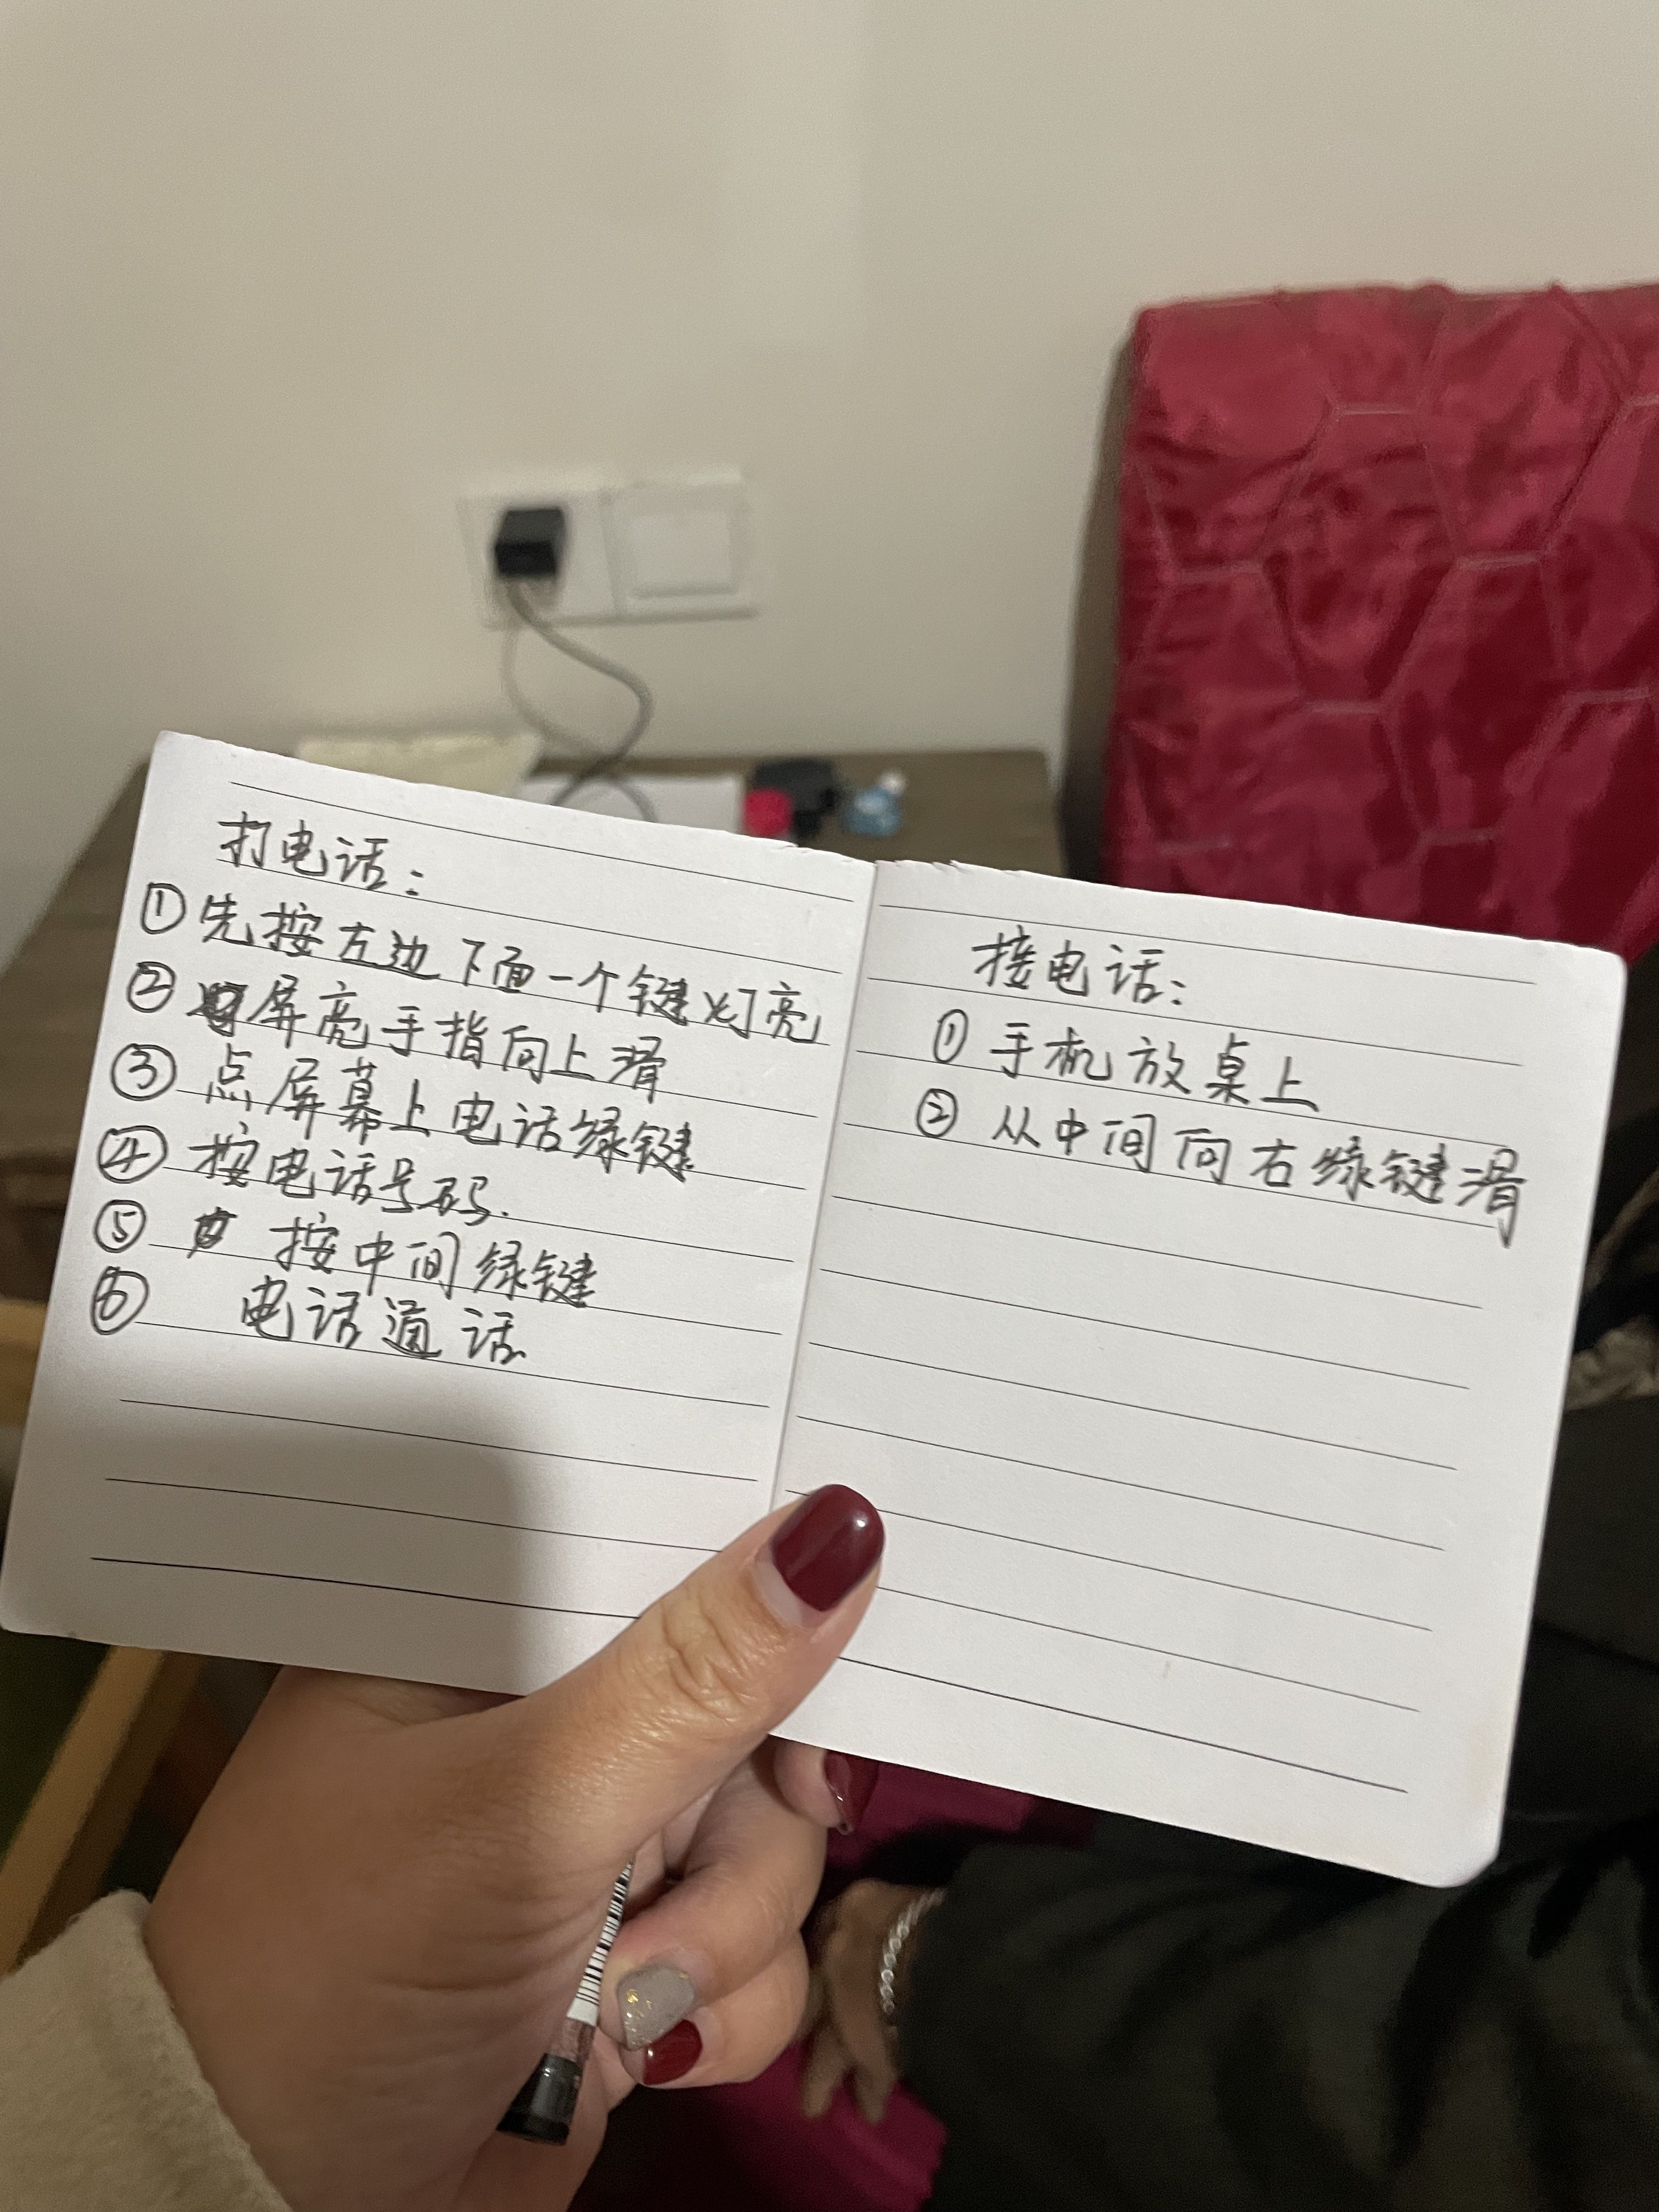 打电话：
①先按左边下面一个键灯亮
②屏亮手指向上滑
③点屏幕上电话绿键
④按电话号码.
⑤按中间绿键
⑥电话通话
接电话：
①手机放桌上
②从中间向右绿键滑